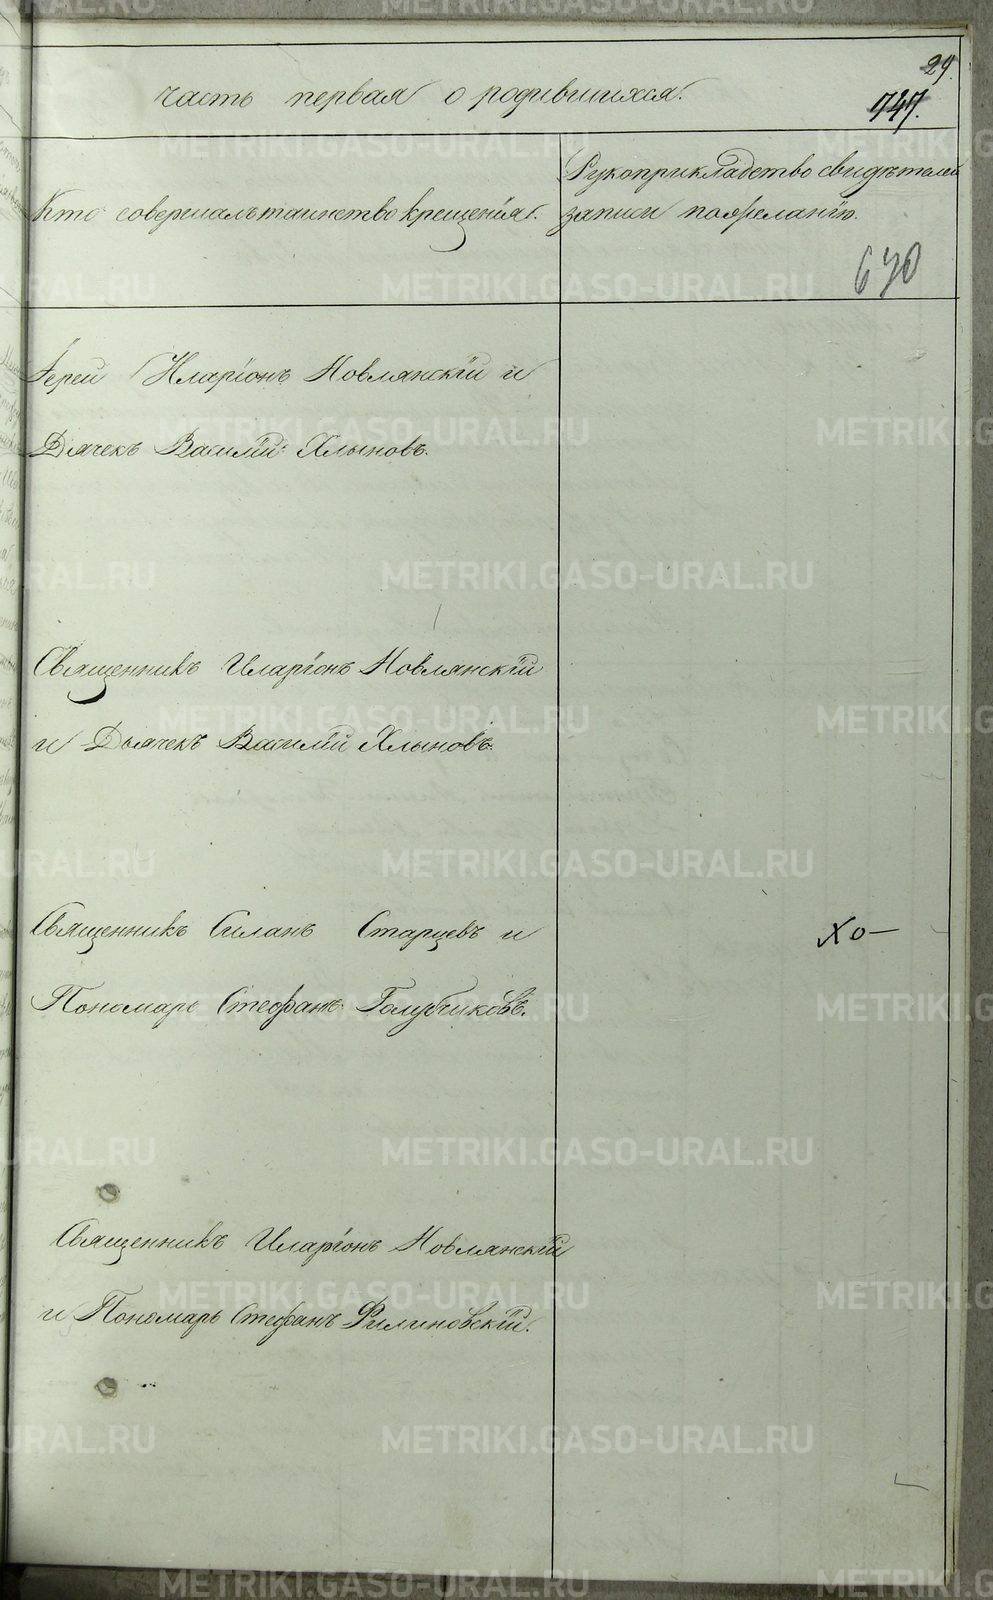 29.
часть первая о родившихся.
747.
Кто совершалъ таинство крещенія.
Рукоприкладство свидѣтелей
записи по желанію.
670
Іерей Иларіонъ Новлянскій и
Дьячекъ Василій Хлыновъ.
Священникъ Иларіонъ Новлянскій
и Дьячекъ Василій Хлыновъ.
Священникъ Силанъ Старцевъ и
Хо—
Пономарь Стефанъ Голубчиковъ.
Священникъ Иларіонъ Новлянскій
и Пономарь Стефанъ Филиновскій.
METRIKI.GASO-URAL.RU